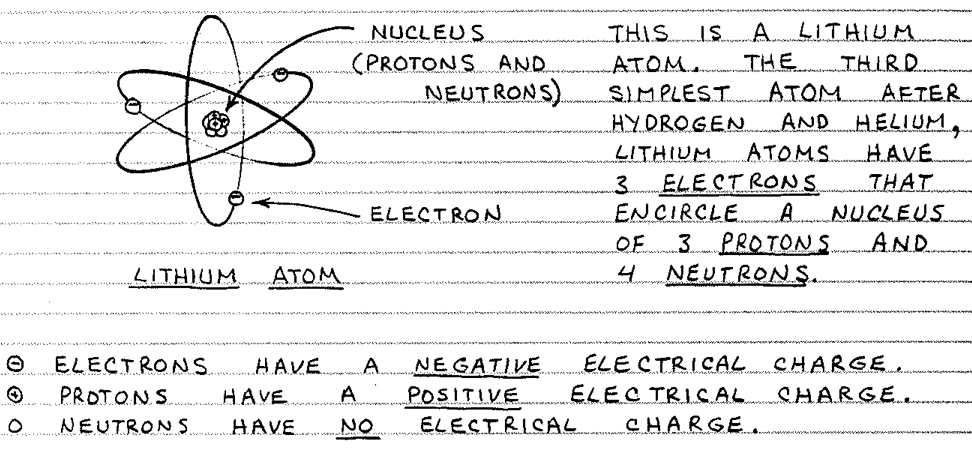 NUCLEUS
(PROTONS AND
NEUTRONS)
ELECTRON
LITHIUM ATOM
THIS IS A LITHIUM
ATOM. THE THIRD
SIMPLEST ATOM AFTER
HYDROGEN AND HELIUM,
LITHIUM ATOMS HAVE
3 ELECTRONS THAT
ENCIRCLE A NUCLEUS
OF 3 PROTONS AND
4 NEUTRONS.
⊖ ELECTRONS HAVE A NEGATIVE ELECTRICAL CHARGE.
⊕ PROTONS HAVE A POSITIVE ELECTRICAL CHARGE.
○ NEUTRONS HAVE NO ELECTRICAL CHARGE.